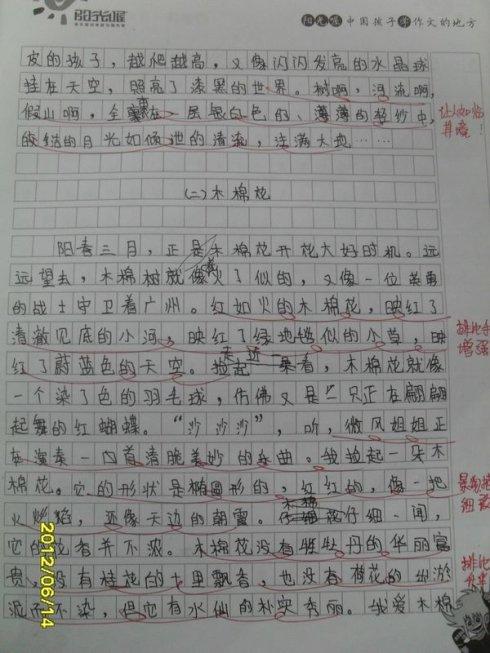 阳光喔
阳光喔中国孩子学作文的地方
皮的孩子，越爬越高，又像闪闪发亮的水晶球
挂在天空，照亮了漆黑的世界。树啊，河流啊，
假山啊，全在一层银白色的、薄薄的轻纱中，
皎洁的月光如倾泄的清流，注满大地……
让人如临
其境！
(二)木棉花
阳春三月，正是木棉花开花大好时机。远
远望去，木棉树就像火了似的，又像一位英勇
的战士守卫着广州。红如火的木棉花，映红了
清澈见底的小河，映红了绿地毯似的小草，映
红了蔚蓝色的天空。走近一看，木棉花就像
一个染了色的羽毛球，仿佛又是一只正在翩翩
起舞的红蝴蝶。“沙沙沙”，听，微风姐姐正
在演奏一内首清脆美妙的乐曲。我捡起一朵木
棉花。它的形状是椭圆形的，红红的，像一把
火焰，还像天边的朝霞。木棉花仔细一闻，
它的花香并不浓。木棉花没有牡丹的华丽富
贵，没有桂花的十里飘香，也没有荷花的出淤
泥而不染，但它有水仙的朴实秀丽。我爱木棉
排比
增强
细致
排比
2012/06/14